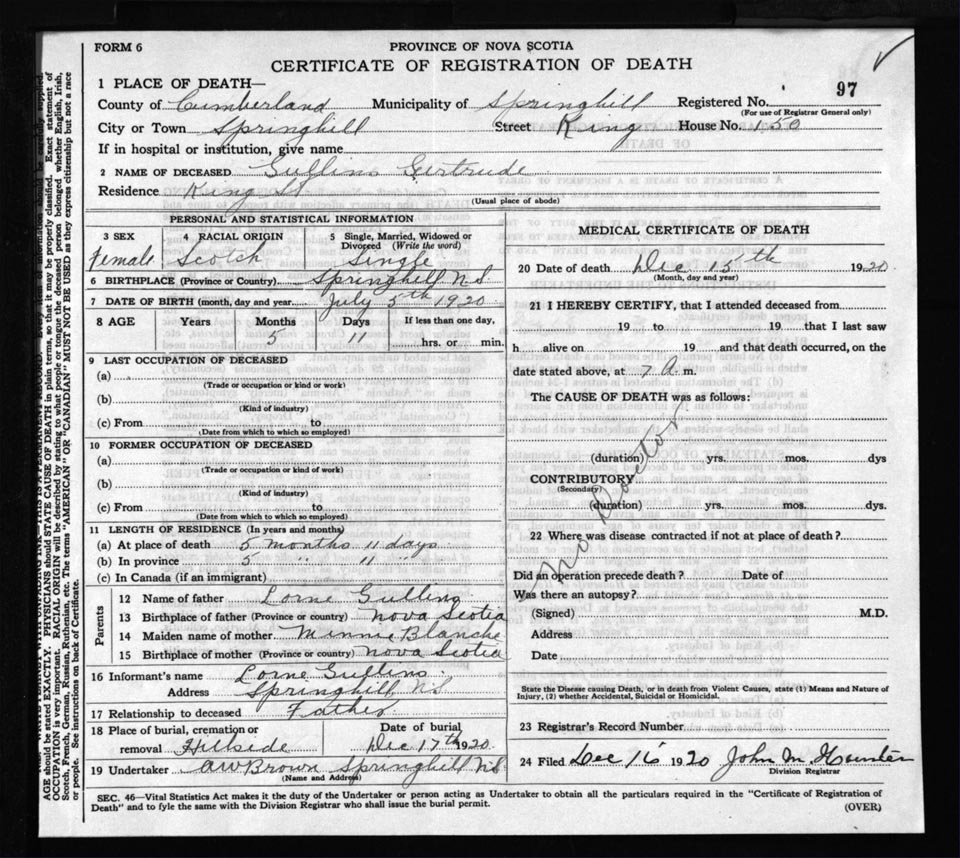 FORM 6
PROVINCE OF NOVA SCOTIA
CERTIFICATE OF REGISTRATION OF DEATH
1 PLACE OF DEATH—
97
County of Cumberland Municipality of Springhill Registered No.
(For use of Registrar General only)
City or Town Springhill Street King House No. 150
If in hospital or institution, give name
2 NAME OF DECEASED Gullins Gertrude
Residence King St
(Usual place of abode)
PERSONAL AND STATISTICAL INFORMATION
3 SEX 4 RACIAL ORIGIN 5 Single, Married, Widowed or Divorced (Write the word)
Female Scotch Single
6 BIRTHPLACE (Province or Country) Springhill N.S
7 DATE OF BIRTH (month, day and year) July 5th 1920
8 AGE Years Months Days If less than one day,
5 11 hrs. or min.
9 LAST OCCUPATION OF DECEASED
(a)
(Trade or occupation or kind or work)
(b)
(Kind of industry)
(c) From to
(Date from which to which so employed)
10 FORMER OCCUPATION OF DECEASED
(a)
(Trade or occupation or kind or work)
(b)
(Kind of industry)
(c) From to
(Date from which to which so employed)
11 LENGTH OF RESIDENCE (In years and months)
(a) At place of death 5 months 11 days
(b) In province 5 " 11 "
(c) In Canada (if an immigrant)
Parents
12 Name of father Lorne Gullins
13 Birthplace of father (Province or country) Nova Scotia
14 Maiden name of mother Minnie Blanche
15 Birthplace of mother (Province or country) Nova Scotia
16 Informant's name Lorne Gullins
Address Springhill N.S
17 Relationship to deceased Father
18 Place of burial, cremation or removal Hillside Date of burial Dec 17th 1920
19 Undertaker A W Brown Springhill N.S
(Name and Address)
MEDICAL CERTIFICATE OF DEATH
20 Date of death Dec 15th 1920
(Month, day and year)
21 I HEREBY CERTIFY, that I attended deceased from
19 to 19 that I last saw
h alive on 19 and that death occurred, on the
date stated above, at 7 A. m.
The CAUSE OF DEATH was as follows:
no Doctor
(duration) yrs. mos. dys
CONTRIBUTORY
(Secondary)
(duration) yrs. mos. dys.
22 Where was disease contracted if not at place of death?
Did an operation precede death? Date of
Was there an autopsy?
(Signed) M.D.
Address
Date
State the Disease causing Death, or in death from Violent Causes, state (1) Means and Nature of
Injury, (2) whether Accidental, Suicidal or Homicidal.
23 Registrar's Record Number
24 Filed Dec 16 1920 John M Hunter
Division Registrar
SEC. 46—Vital Statistics Act makes it the duty of the Undertaker or person acting as Undertaker to obtain all the particulars required in the "Certificate of Registration of
Death" and to fyle the same with the Division Registrar who shall issue the burial permit.
(OVER)
AGE should be stated EXACTLY. PHYSICIANS should STATE CAUSE OF DEATH in plain terms, so that it may be properly classified. Exact statement of
OCCUPATION is very important. RACIAL ORIGIN will be described by stating to what people or tongue the deceased person belonged whether English, Irish,
Scotch, French, German, Russian, Ruthenian, etc. The terms "AMERICAN" OR "CANADIAN" MUST NOT BE USED as they express citizenship but not a race
or people. See instructions on back of Certificate.